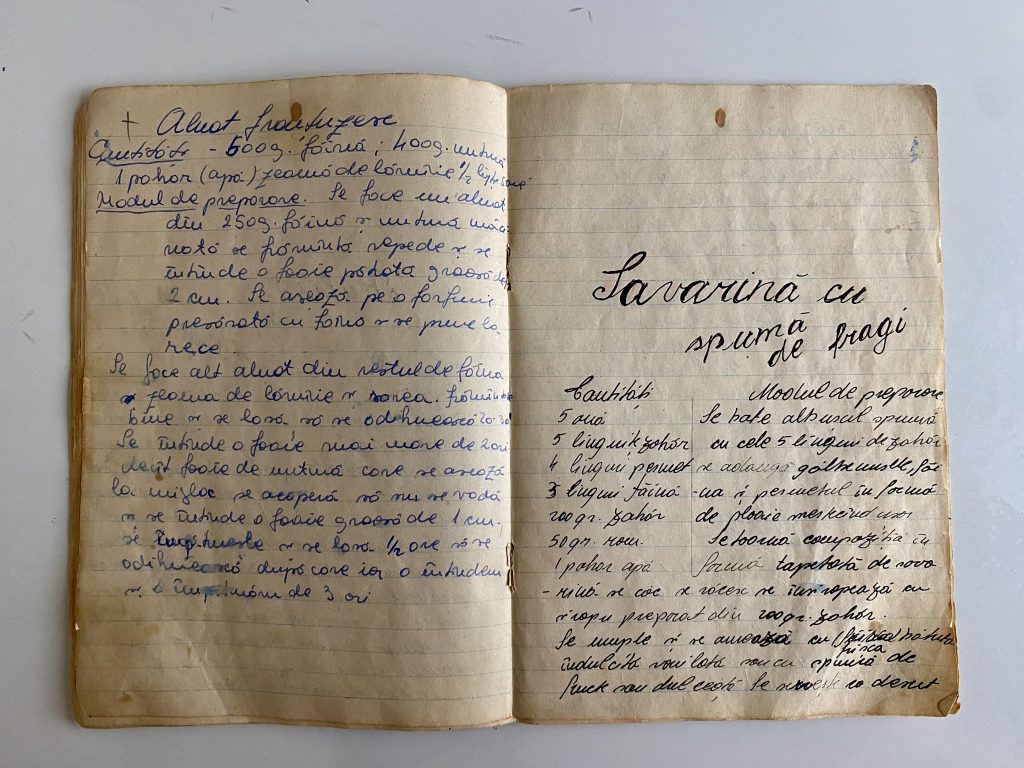 Aluat franțuzesc
Cantități - 500g. făină; 400g. untură
1 pahar (apă) zeamă de lămîie 1/2 ligh. sare
Modul de preparare. Se face un aluat
din 250g. făină și untură
se frămîntă repede și se
întinde o foaie pătrată groasă de
2 cm. Se așează pe o farfurie
presărată cu făină și se pune la
rece.
Se face alt aluat din restul de făină
și zeama de lămîie și sarea. frămîntă
bine și se lasă să se odihnească 20-30
Se întinde o foaie mai mare de 2 ori
decît foaia de untură care se așează
la mijloc se acoperă să nu se vadă
și se întinde o foaie groasă de 1 cm.
se împăturește și se lasă 1/2 ore să se
odihnească după care iar o întindem
și o împăturim de 3 ori
Savarină cu
spumă
de fragi
Cantități Modul de preparare
5 ouă Se bate albușul spumă
5 linguri zahăr cu cele 5 linguri de zahăr
4 linguri pesmet se adaugă gălbenușele, făi
3 linguri făină -na și pesmetul în formă
200 gr. zahăr de ploaie mestecînd ușor
50 gr. rom. Se toarnă compoziția în
1 pahar apă formă tapetată de sava
-rină se coc se răcesc se însiropează cu
siropu preparat din 200 gr. zahăr.
Se umple și se ornează cu bătută
frișca
îndulcită vanilată sau cu spumă de
sau dulceață Se servește ca desert